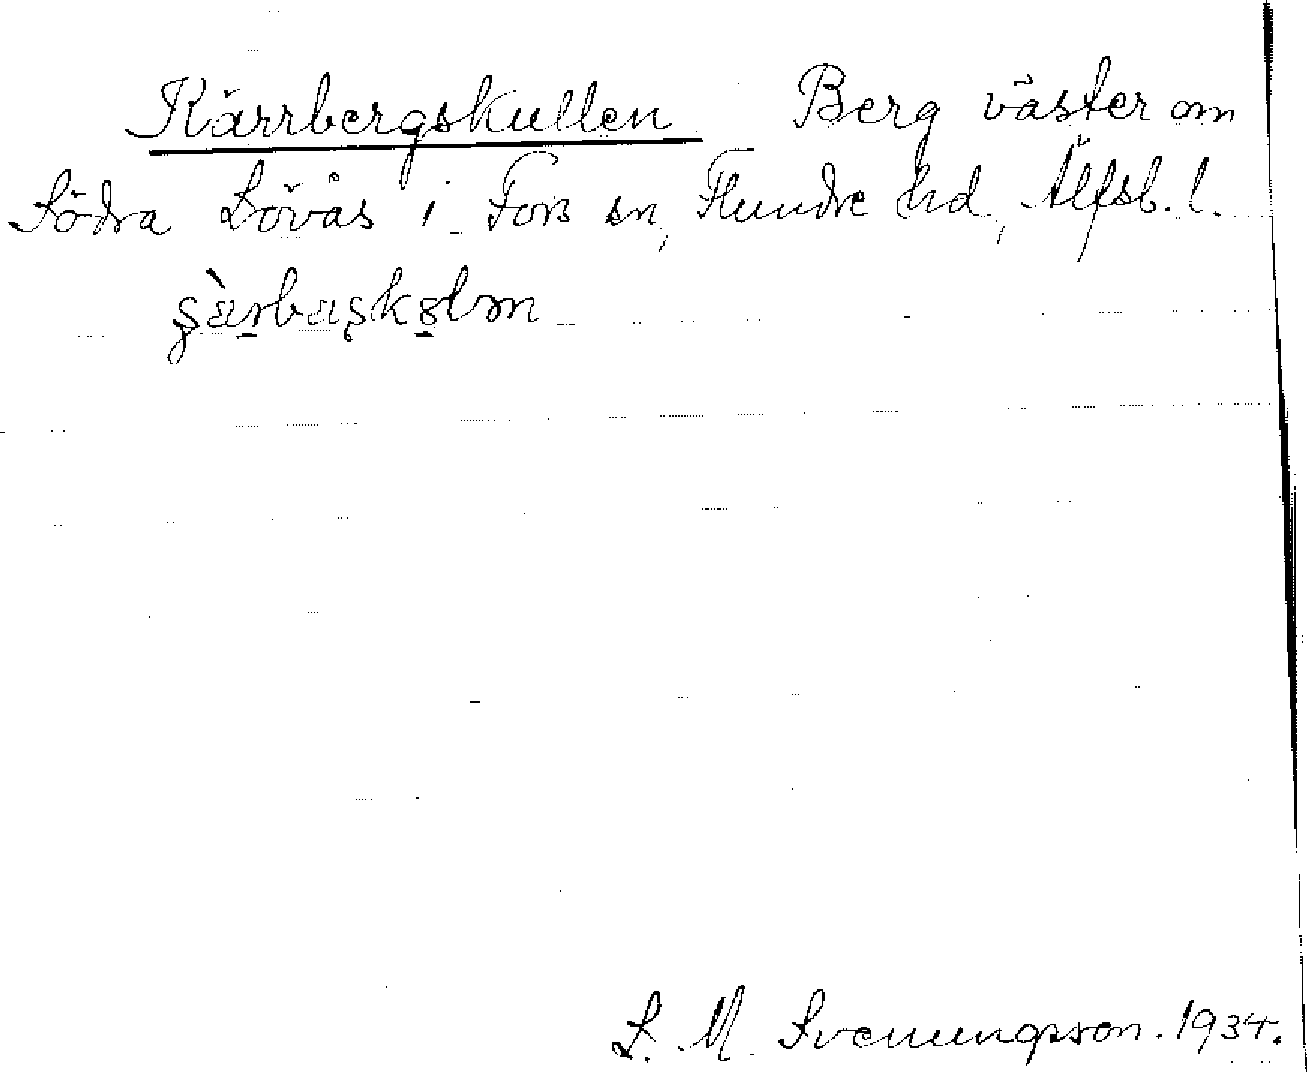 Kärrbergskullen Berg väster om
Södra Lövås i Fors sn, Flundre hd, Älfsb. l.
S. M. Svenungsson. 1934.